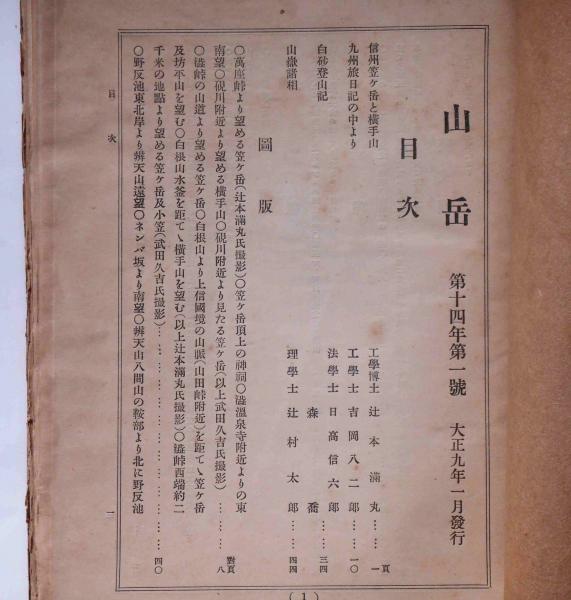 山岳 第十四年第一號 大正九年一月發行
目次
信州笠ヶ岳と橫手山 工學博士 辻本滿丸……一頁
九州旅日記の中より 工學士 吉岡八二郎……一〇
法學士 日高信六郎
白砂登山記 森喬……三四
山嶽諸相 理學士 辻村太郎……四四
圖版
〇萬座峠より望める笠ヶ岳(辻本滿丸氏撮影)〇笠ヶ岳頂上の神祠〇澁溫泉寺附近よりの東
南望〇硯川附近より望める橫手山〇硯川附近より見たる笠ヶ岳(以上武田久吉氏撮影)……對頁八
〇澁峠の山道より望める笠ヶ岳〇白根山より上信國境の山脈(山田峠附近)を距てゝ笠ヶ岳
及坊平山を望む〇白根山水釜を距てゝ橫手山を望む(以上辻本滿丸氏撮影)〇澁峠西端約二
千米の地點より望める笠ヶ岳及小笠(武田久吉氏撮影)……四〇
〇野反池東北岸より辨天山遠望〇ネンバ坂より南望〇辨天山八間山の鞍部より北に野反池
目次
一
(1)